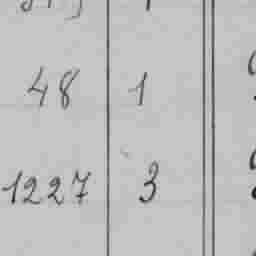 48 1
1227 3